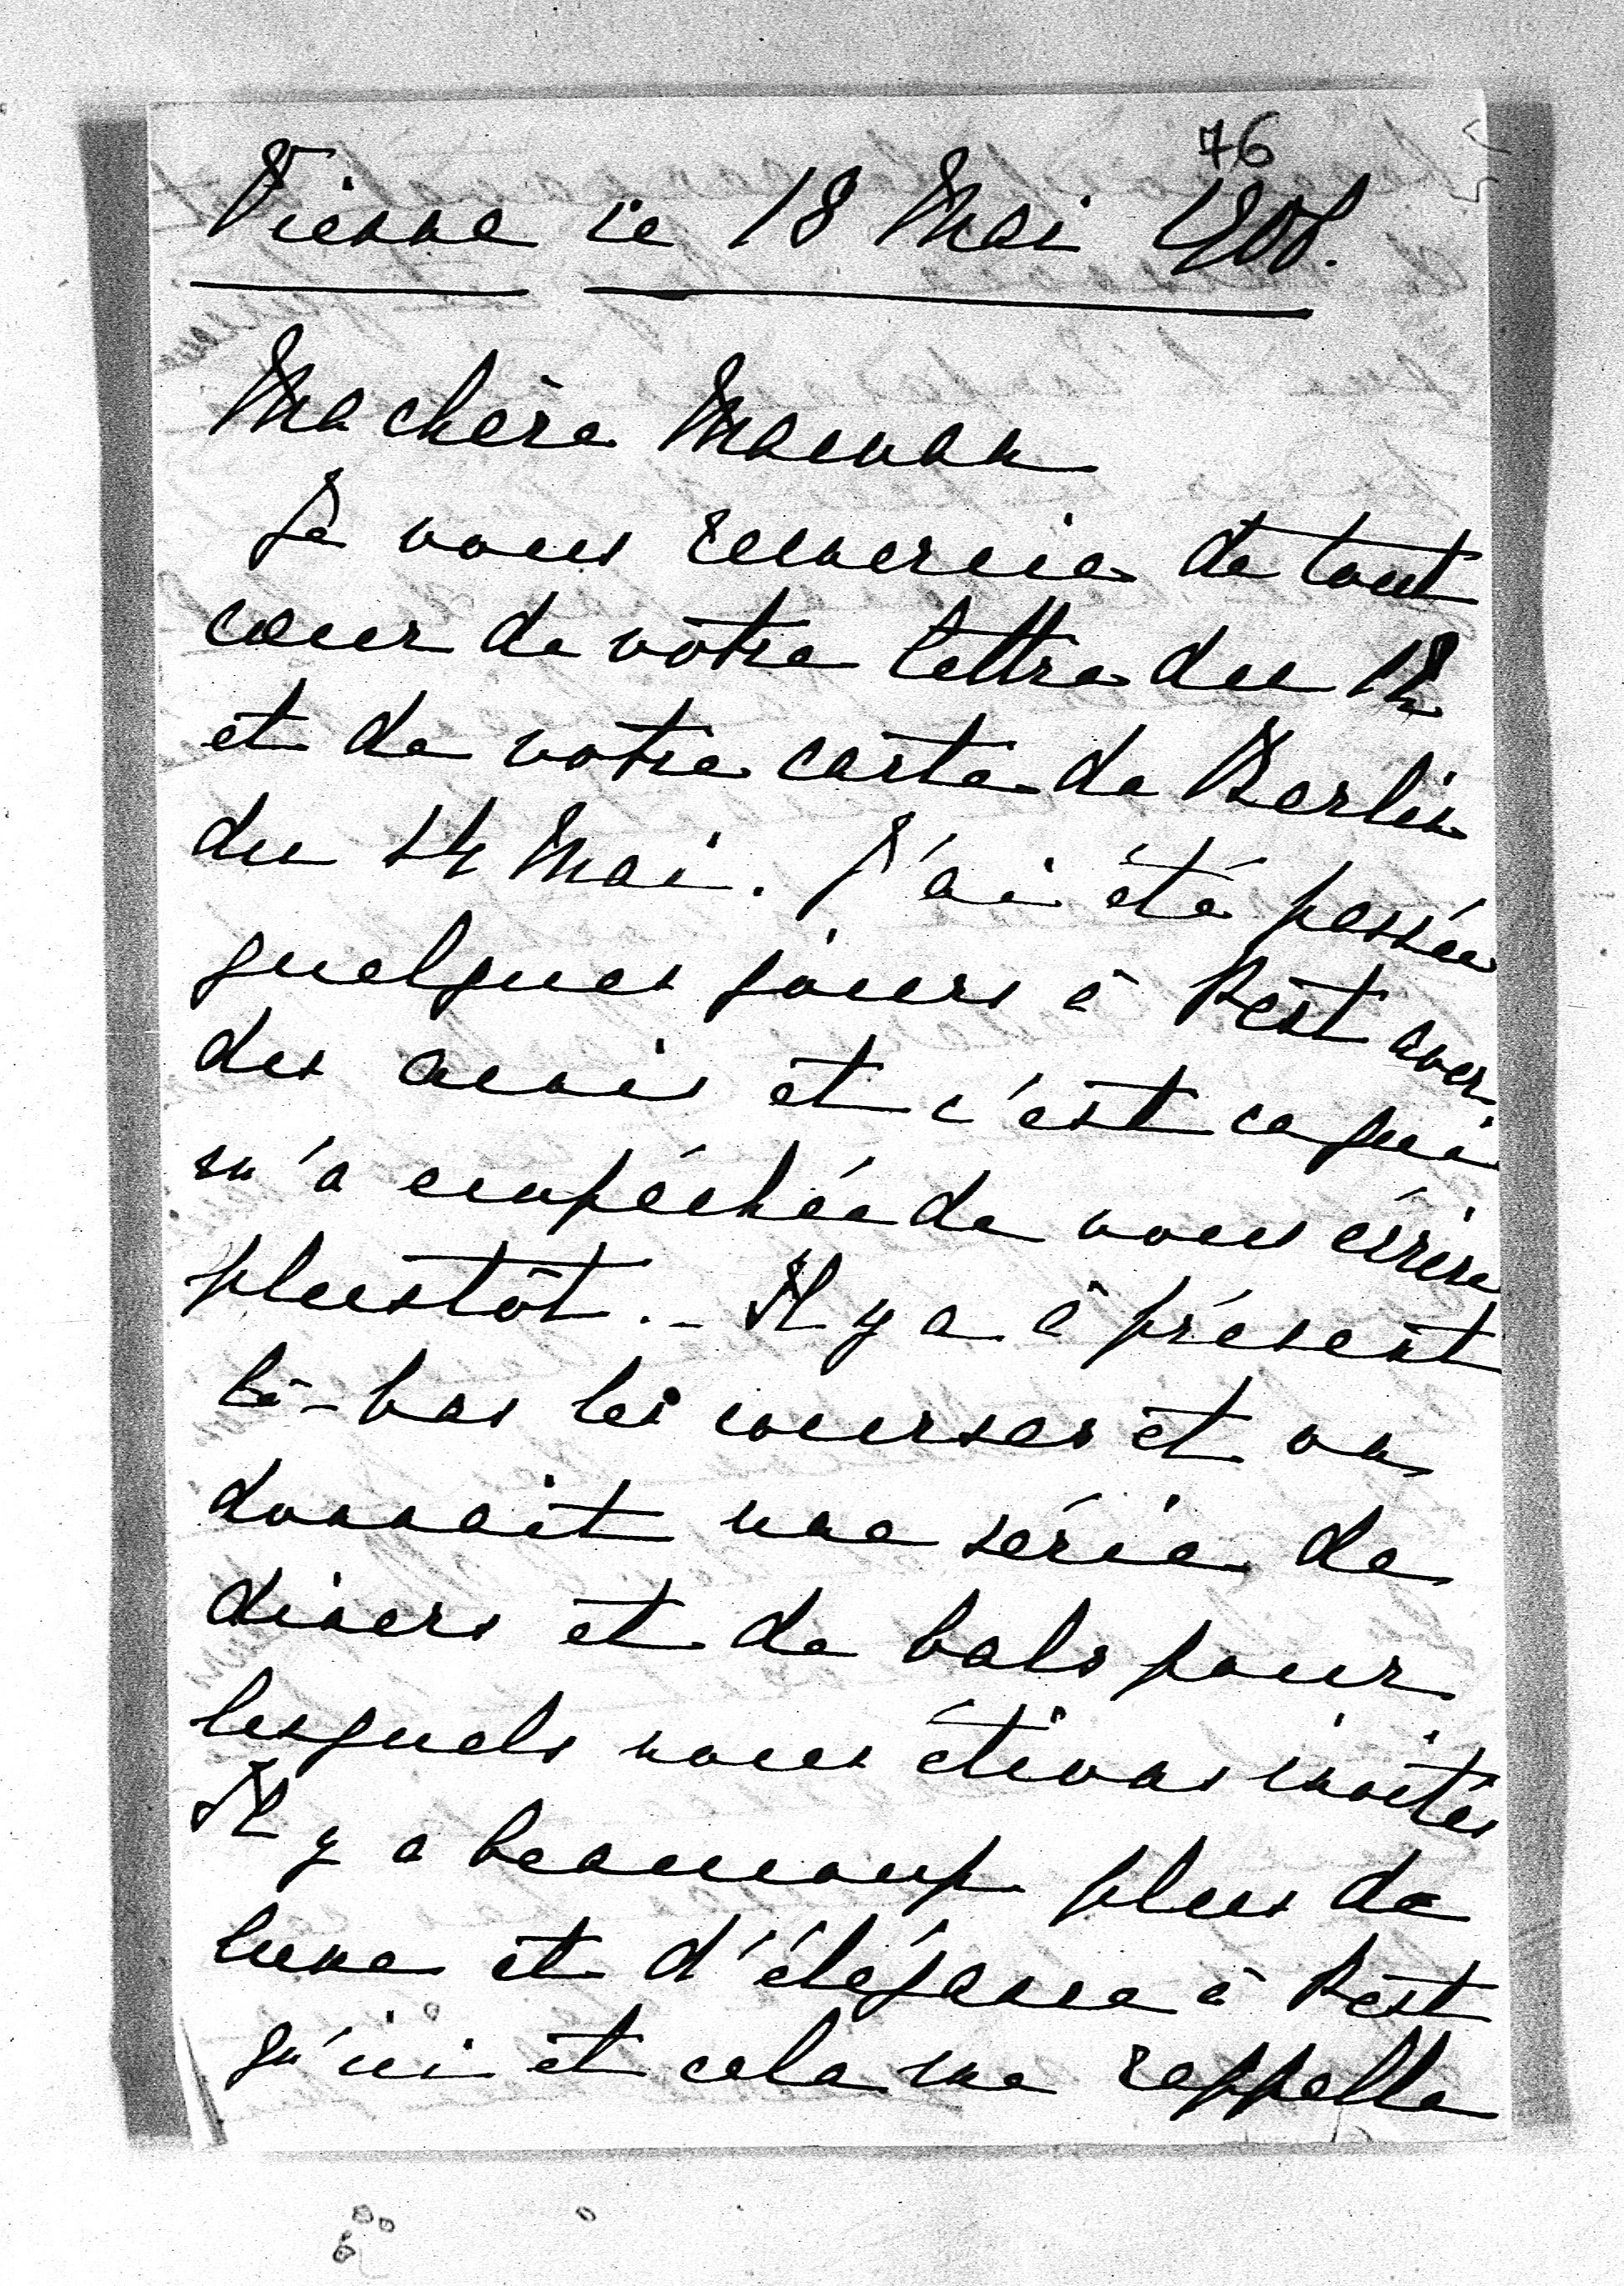 76
Vienne ce 18 Mai 1908.
Ma chère Maman
Je vous remercie de tout
cœur de vôtre lettre du 12
et de votre carte de Berlin
du 14 Mai. J'ai été passée
quelques jours à Pest avec
des amis et c'est ce qui
m'a empéchée de vous écrire
plustôt. - Il y a à présent
là-bas les courses et on
donnait une série de
diners et de bals pour
lesquels nous étions invités
Il y a beaucoup plus de
luxe et d'élégance à Pest
qu'ici et cela me rappelle